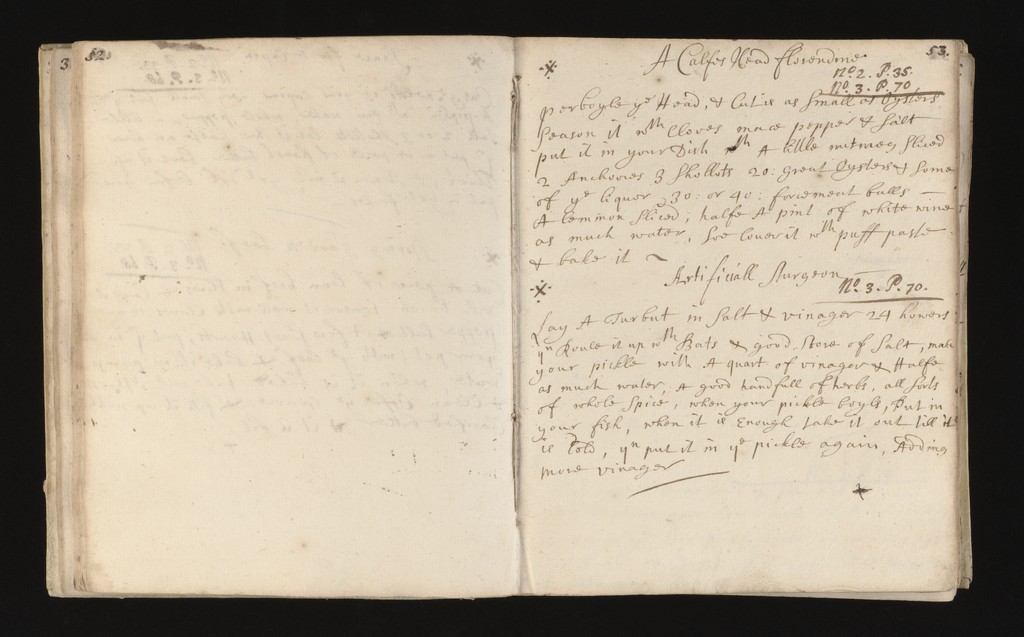 3
52.
53.
A Calfes Head florendine
No. 2. P. 35.
No. 3. P. 70
perboyle ye Head, & Cut it as Small as Oysters
Season it wth Cloves mace pepper & Salt
put it in your Dish wth A little nutmeg Sliced
2 Anchovies 3 Shollots 20: great Oysters & Some
of ye liquor 30: or 40: forcement balls
A lemmon Sliced, halfe A pint of white wine
as much water, Soe Cover it wth puff paste
& bake it ~
Artificiall Sturgeon
No. 3. P. 70.
Lay A Turbut in Salt & vinager 24 howers
yn Roule it up wth & good Store of Salt, make
your pickle with A quart of vinager & Halfe
as much water, A good handfull of herbs, all sorts
of whole Spice, when your pickle boyls, Put in
your fish, when it is Enough take it out till it
is Cold, yn put it in ye pickle again, Adding
more vinager